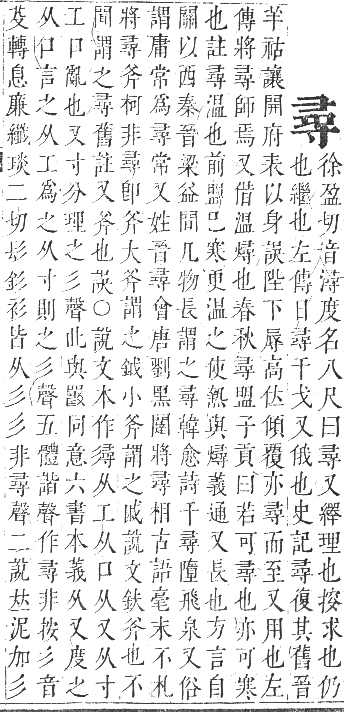 尋
徐盈切音潯度名八尺曰尋又繹理也按求也仍
也繼也左傳日尋干戈又俄也史記尋復其舊晉
羊祜讓開府表以身誤陛下辱高位傾覆亦尋而至又用也左
傳將尋師焉又借溫燖也春秋尋盟子貢曰若可尋也亦可寒
也註尋溫也前盟已寒更溫之使熱與燖義通又長也方言自
關以西秦晉梁益間凡物長謂之尋韓愈詩千尋墮飛泉又俗
謂庸常為尋常又姓晉尋會唐劉黑闥將尋相古語毫末不札
將尋斧柯非尋卽斧大斧謂之鉞小斧謂之戚說文鈇斧也不
聞謂之尋舊註又斧也誤○說文本作𢒫从工从口从又从寸
工口亂也又寸分理之彡聲此與𤕦同意六書本義从又度之
从口言之从工為之从寸則之彡聲五體諧聲作尋非按彡音
芟轉息廉纖琰二切髟衫皆从彡彡非尋聲二說𠀤泥加彡